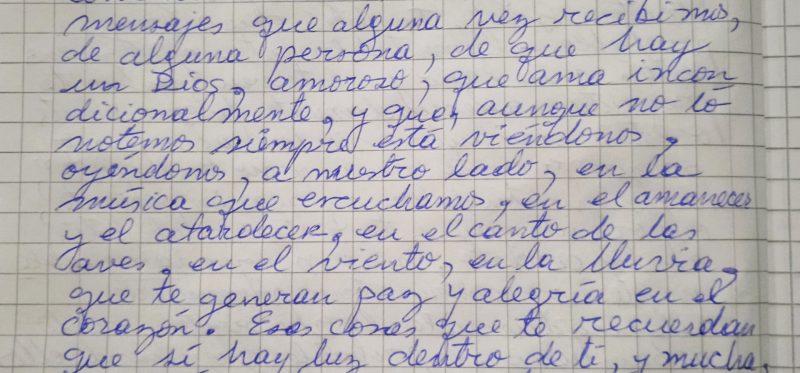 mensajes que alguna vez recibimos,
de alguna persona, de que hay
un Dios, amoroso, que ama incon
dicionalmente, y que, aunque no lo
notemos siempre está viéndonos,
oyéndonos, a nuestro lado, en la
música que escuchamos, en el amanecer
y el atardecer, en el canto de las
aves, en el viento, en la lluvia,
que te generan paz y alegría en el
corazón. Esas cosas que te recuerdan
que sí hay luz dentro de ti, y mucha.